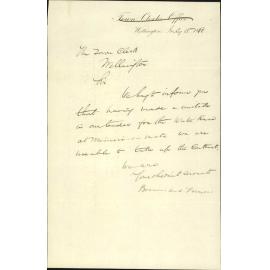 Town Clerk's Office
Wellington July 15th
The Town Clerk
Wellington
Sir
We beg to inform you
that having made a mistake
in our tender for the
at we are
unable to take up the Contract.
We are
Your obedient servants